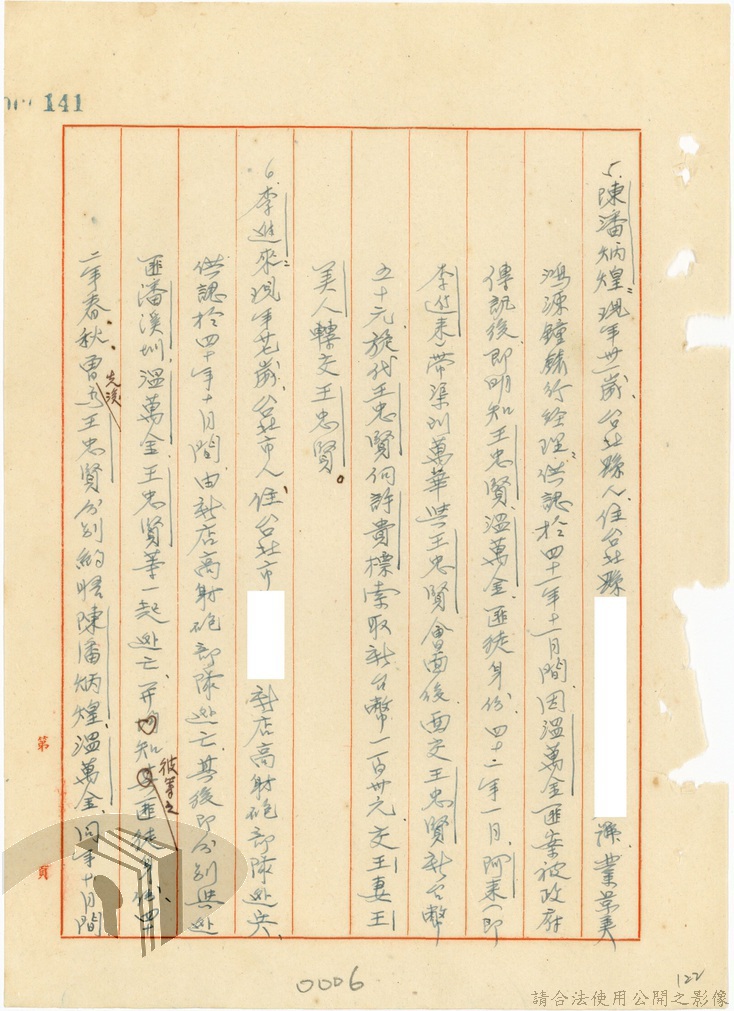 141
5.陳潘炳煌：現年卅一歲、台北縣人、住台北縣 號、業景美
鴻源鐘錶行經理、供認於四十一年十一月間因溫萬金匪案被政府
傳訊後、即明知王忠賢、溫萬金匪徒身份、四十二年一月、阿來(即
李進來)帶渠到萬華與王忠賢會面後、面交王忠賢新台幣
五十元、旋代王忠賢向許貴標索取新台幣一百卅元、交王妻王
美人轉交王忠賢。
6.李進來：現年廿七歲、台北市人、住台北市 新店高射砲部隊逃兵、
供認於四十年十月間、由新店高射砲部隊逃亡、其後即分別與逃
匪潘溪圳、溫萬金、王忠賢等一起逃亡、并明知彼等之匪徒身份、四十
二年春、秋、曾先後為王忠賢分別約晤陳潘炳煌、溫萬金、同年十月間
第 頁
0006
122
請合法使用公開之影像